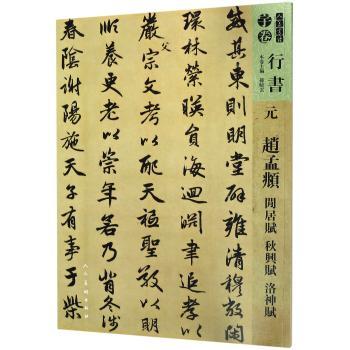 宇卷
行書
本卷主編
元
趙孟頫
閒居賦 秋興賦 洛神賦
威其東則明堂辟雍清穆敞閑
環林縈暎員海迴淵聿追孝以
嚴父宗文考以配天祗聖敬以明
順養更老以崇年若乃背冬涉
春陰謝陽施天子有事于柴
人民美術出版社